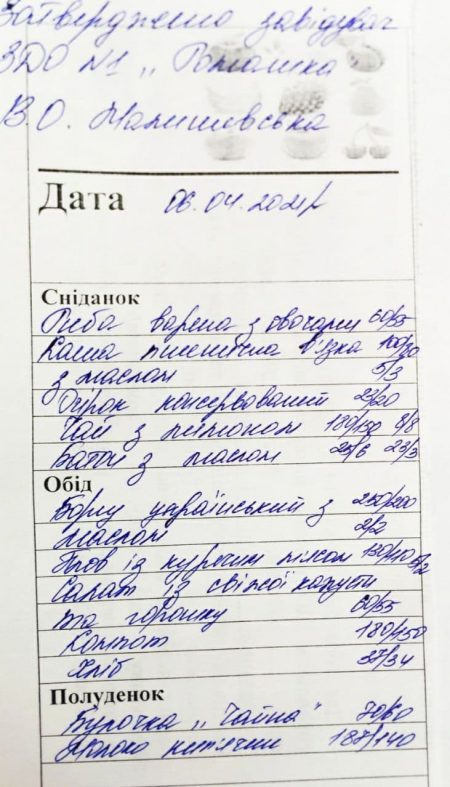 Затверджено завідувач
ЗДО №1 „Ромашка"
В.О. Малишевська
Дата 06.04.2021р
Сніданок
Риба варена з овочами 60/55
Каша пшенична в'язка 100/80
з маслом 5/3
Огірок консервований 23/20
Чай з лимоном 180/150 8/8
Батон з маслом 25/6 23/3
Обід
Борщ український з 250/200
маслом 2/2
Плов із курячим м'ясом 130/110
Салат із свіжої капусти
та горошку 60/55
Компот 180/150
Хліб 37/34
Полуденок
Булочка „Чайна" 70/60
Молоко кип'ячене 187/140